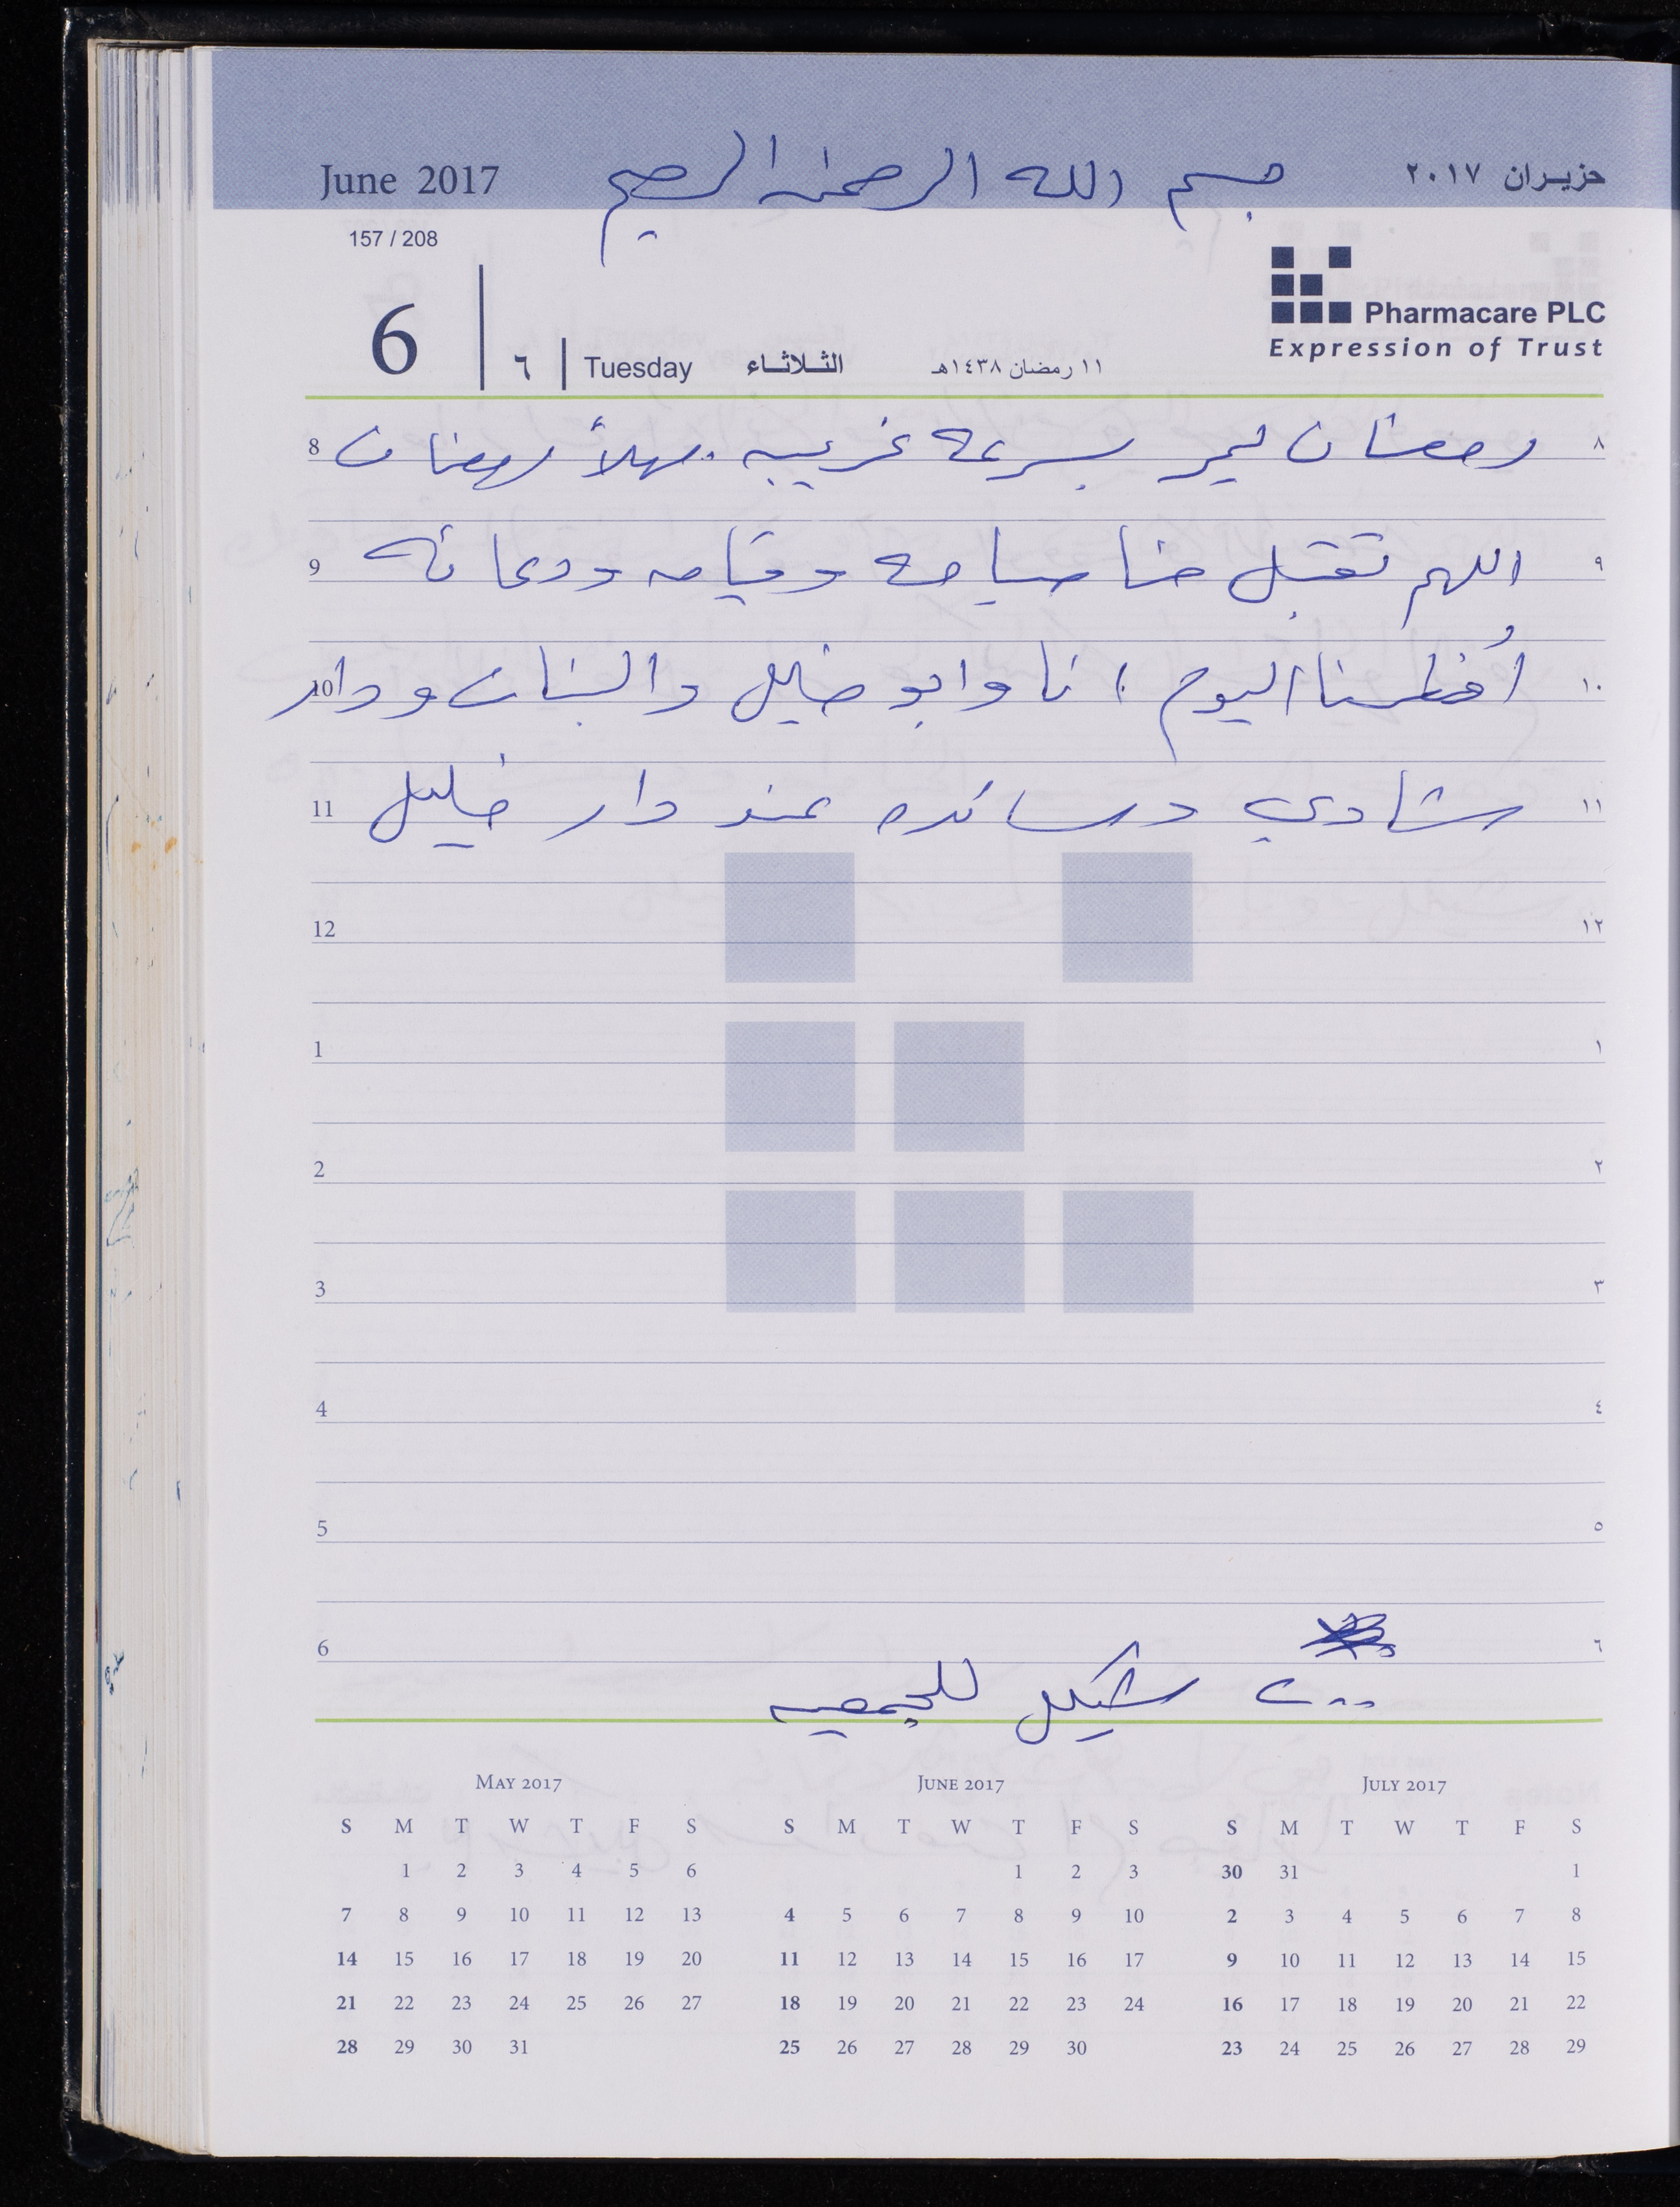 June 2017 بسم الله الرحمن الرحيم حزيران ٢٠١٧
157 / 208
Pharmacare PLC
Expression of Trust
6 ٦ Tuesday الثلاثاء ١١ رمضان ١٤٣٨هـ
8 رمضان يمر بسرعة غريبه . مهلاً رمضان ٨
9 اللهم تقبل منا صيامه وقيامه ودعائه ٩
10 أفطرنا اليوم انا وابو خليل والبنات ودار ١٠
11 شادي وسائده عند دار خليل ١١
12 ١٢
1 ١
2 ٢
3 ٣
4 ٤
5 ٥
6 ٦
شيكل للجمعيه
May 2017 June 2017 July 2017
S M T W T F S S M T W T F S S M T W T F S
1 2 3 4 5 6 1 2 3 30 31 1
7 8 9 10 11 12 13 4 5 6 7 8 9 10 2 3 4 5 6 7 8
14 15 16 17 18 19 20 11 12 13 14 15 16 17 9 10 11 12 13 14 15
21 22 23 24 25 26 27 18 19 20 21 22 23 24 16 17 18 19 20 21 22
28 29 30 31 25 26 27 28 29 30 23 24 25 26 27 28 29